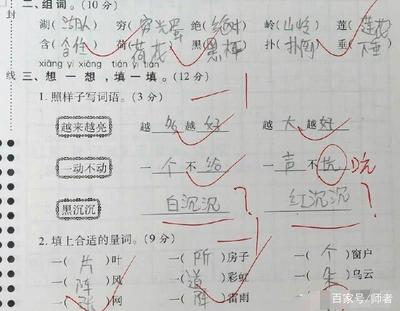 封
线
二、组词。(10分)
湖(湖人) 穷(穷光蛋) 绝( ) 岭(山岭) 莲(莲花)
含( ) 荷(荷花) 黑( ) 扑( ) 垂(下垂)
xiǎng yi xiǎng tián yi tián
三、想一想,填一填。(12分)
1. 照样子写词语。(3分)
越来越亮 越 越好 越大越好
一动不动 一个不给 一声不坑 吭
黑沉沉 白沉沉 ? 红沉沉 ?
2. 填上合适的量词。(9分)
一(片)叶 一(所)房子 一(个)窗户
一(阵)风 一(道)彩虹 一(朵)乌云
一(张)网 一(阵)雷雨
百家号/师者